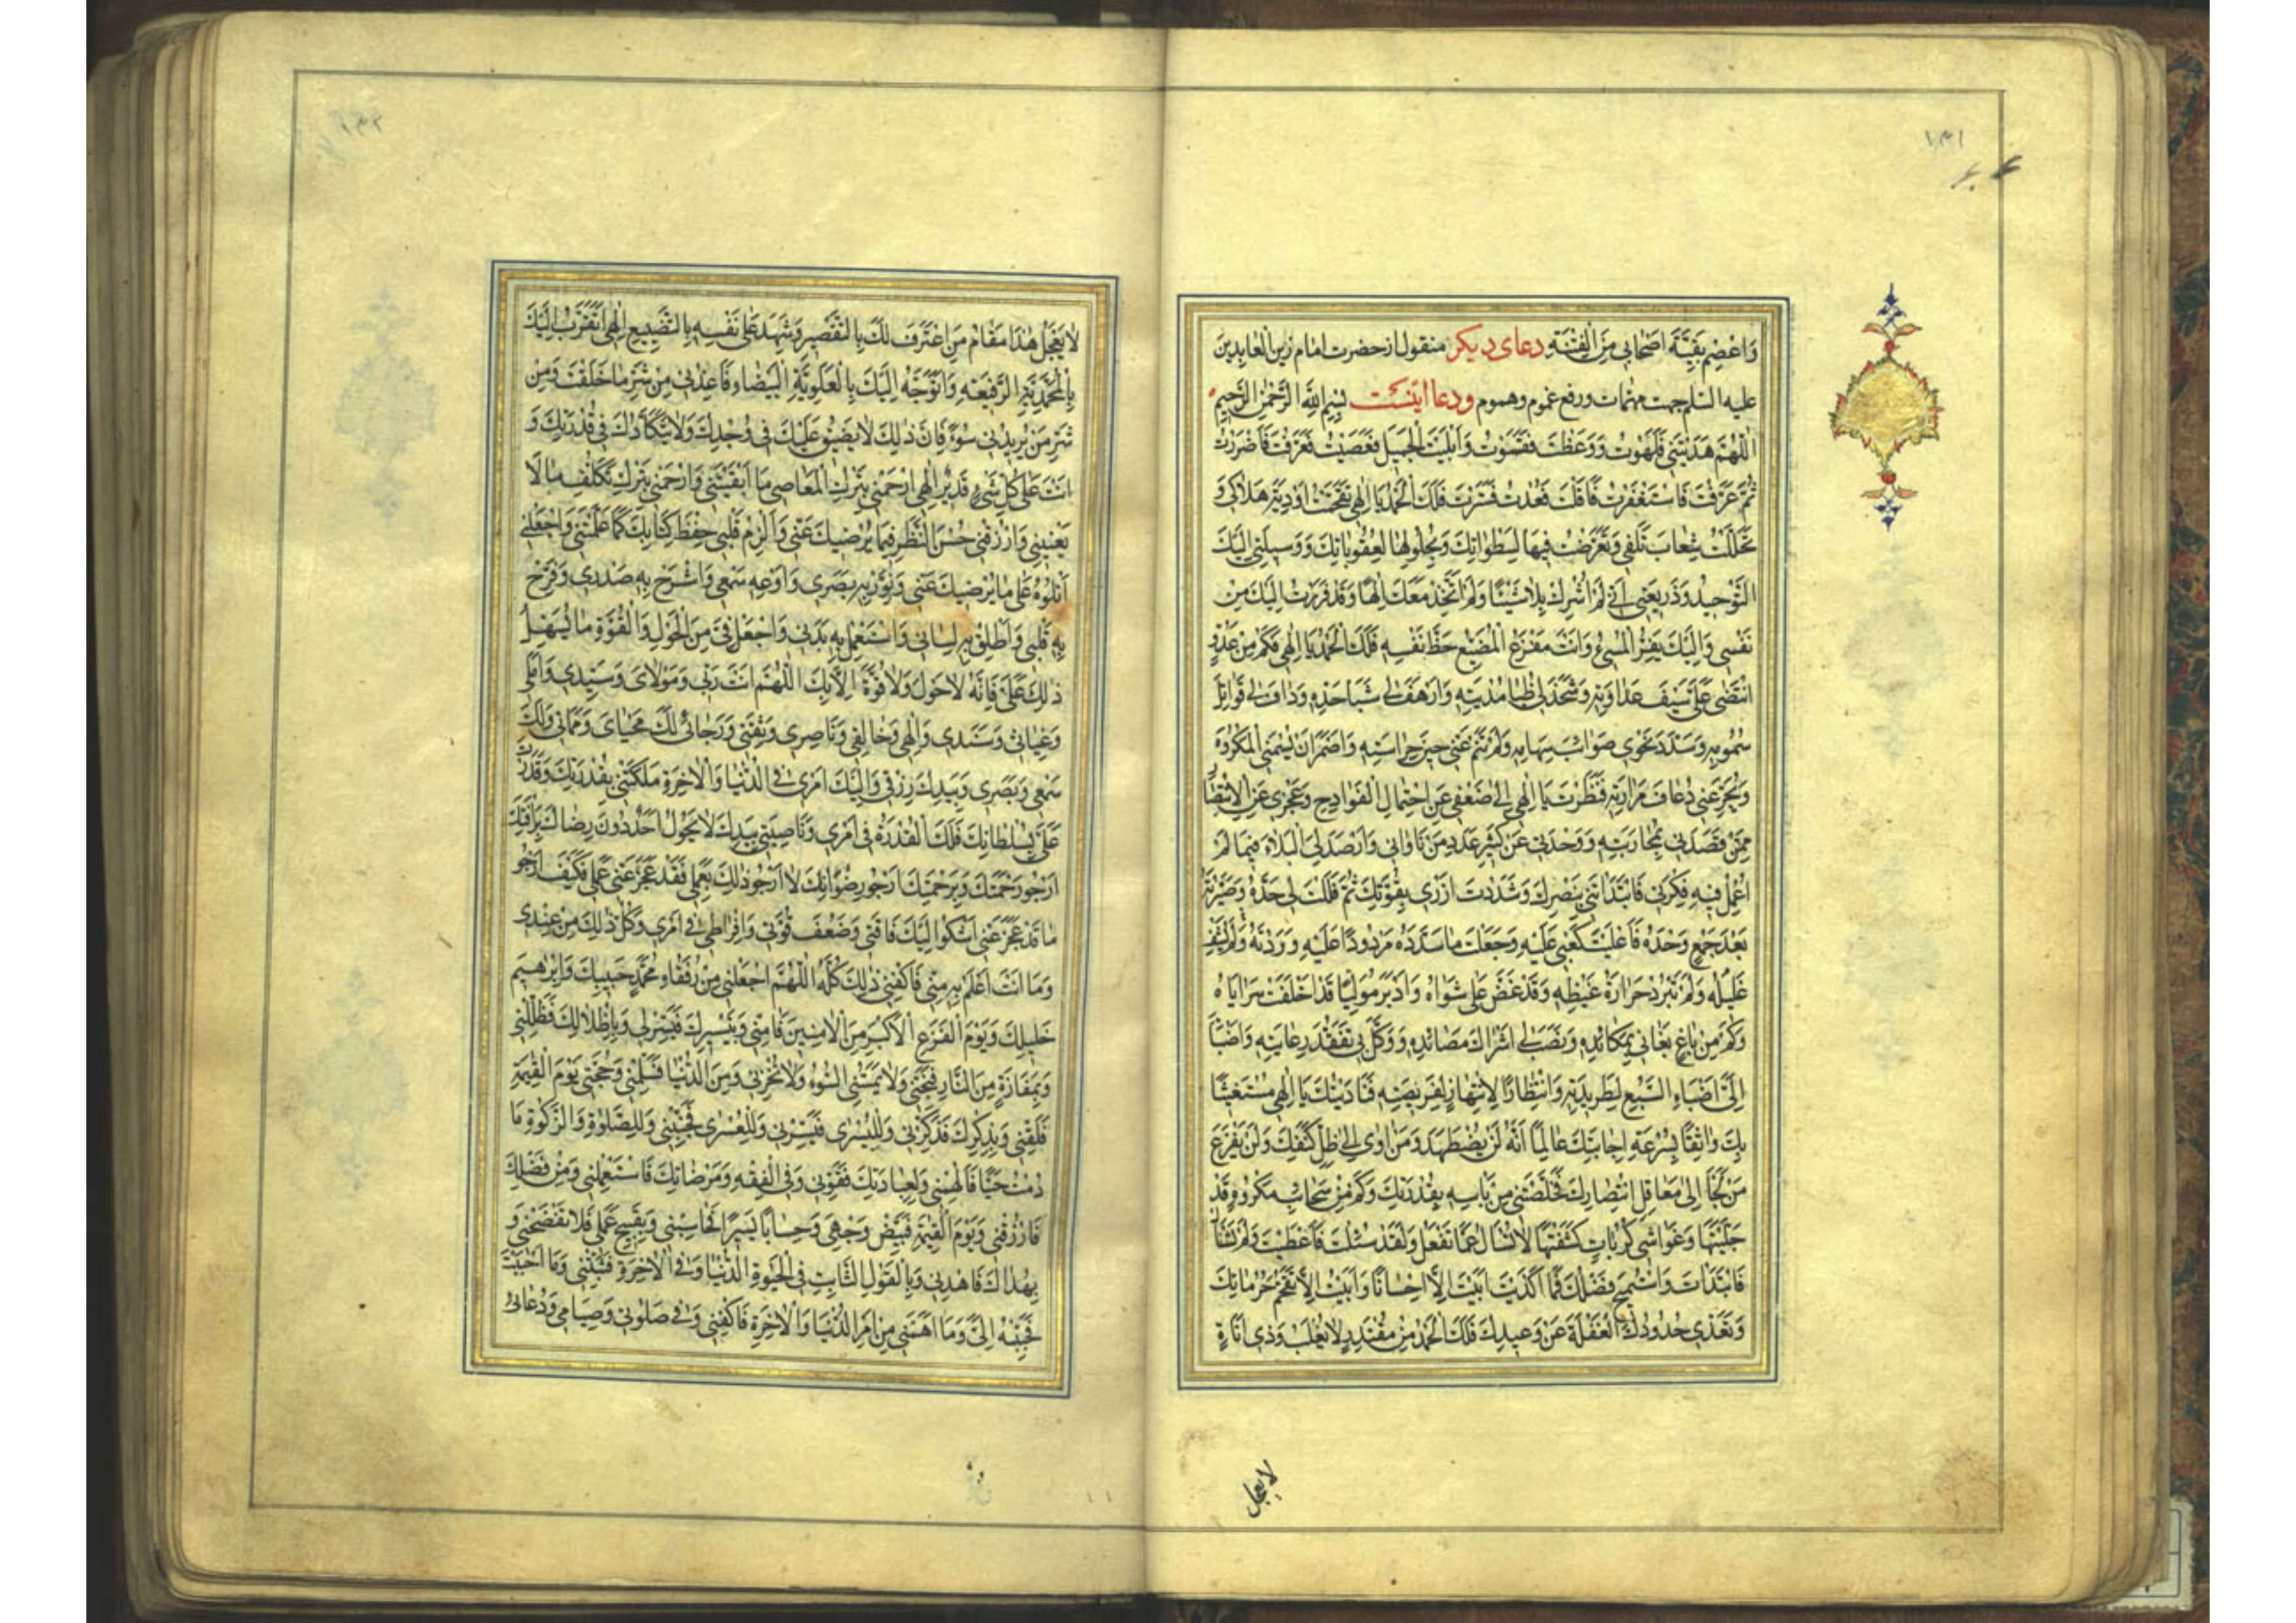 ١٣١
وَاعْصِمْ بَقِيَّةَ اَصْحَابِي مِنَ الْفِتْنَةِ دعای دیکر منقول از حضرت امام زین العابدین
علیه السلم جهت مهمات ورفع غموم وهموم ودعا اینست بِسْمِ اللهِ الرَّحْمٰنِ الرَّحِيمِ
اَللّٰهُمَّ هَدَيْتَنِي فَلَهَوْتُ وَوَعَظْتَ فَقَسَوْتُ وَاَبْلَيْتَ الْجَمِيلَ فَعَصَيْتُ فَعَرَفْتَ فَاَصْرَرْتُ
ثُمَّ عَرَّفْتَ فَاسْتَغْفَرْتُ فَاَقَلْتَ فَعُدْتُ فَسَتَرْتَ فَلَكَ الْحَمْدُ يَا اِلٰهِي تَقَحَّمْتُ اَوْدِيَةَ هَلَاكِي وَ
تَخَلَّلْتُ شِعَابَ تَلَفِي وَتَعَرَّضْتُ فِيهَا لِسَطَوَاتِكَ وَبِحُلُولِهَا لِعُقُوبَاتِكَ وَوَسِيلَتِي اِلَيْكَ
التَّوْحِيدُ وَذَرِيعَتِي اَنِّي لَمْ اُشْرِكْ بِكَ شَيْئًا وَلَمْ اَتَّخِذْ مَعَكَ اِلٰهًا وَقَدْ فَرَرْتُ اِلَيْكَ مِنْ
نَفْسِي وَاِلَيْكَ يَفِرُّ الْمُسِيءُ وَاَنْتَ مَفْزَعُ الْمُضَيِّعِ حَظَّ نَفْسِهِ فَلَكَ الْحَمْدُ يَا اِلٰهِي فَكَمْ مِنْ عَدُوٍّ
انْتَضٰى عَلَيَّ سَيْفَ عَدَاوَتِهِ وَشَحَذَ لِي ظُبَا مُدْيَتِهِ وَاَرْهَفَ لِي شَبَا حَدِّهِ وَدَافَ لِي قَوَاتِلَ
سُمُومِهِ وَسَدَّدَ نَحْوِي صَوَائِبَ سِهَامِهِ وَلَمْ تَنَمْ عَنِّي عَيْنُ حِرَاسَتِهِ وَاَضْمَرَ اَنْ يَسُومَنِي الْمَكْرُوهَ
وَيُجَرِّعَنِي ذُعَافَ مَرَارَتِهِ فَنَظَرْتَ يَا اِلٰهِي اِلٰى ضَعْفِي عَنِ احْتِمَالِ الْفَوَادِحِ وَعَجْزِي عَنِ الْاِنْتِصَارِ
مِمَّنْ قَصَدَنِي بِمُحَارَبَتِهِ وَوَحْدَتِي عَنْ كَثِيرِ عَدَدِ مَنْ نَاوَانِي وَاَرْصَدَ لِيَ الْبَلَاءَ فِيمَا لَمْ
اُعْمِلْ فِيهِ فِكْرِي فَابْتَدَاْتَنِي بِنَصْرِكَ وَشَدَدْتَ اَزْرِي بِقُوَّتِكَ ثُمَّ فَلَلْتَ لِي حَدَّهُ وَصَيَّرْتَهُ
بَعْدَ جَمْعٍ وَحْدَهُ فَاَعْلَيْتَ كَعْبِي عَلَيْهِ وَجَعَلْتَ مَا سَدَّدَهُ مَرْدُودًا عَلَيْهِ وَرَدَدْتَهُ وَلَمْ يَشْفِ
غَلِيلَهُ وَلَمْ تَبْرُدْ حَرَارَةُ غَيْظِهِ وَقَدْ عَضَّ عَلٰى شَوَاهُ وَاَدْبَرَ مُوَلِّيًا قَدْ اَخْلَفَتْ سَرَايَاهُ
وَكَمْ مِنْ بَاغٍ بَغَانِي بِمَكَائِدِهِ وَنَصَبَ لِي اَشْرَاكَ مَصَائِدِهِ وَوَكَّلَ بِي تَفَقُّدَ رِعَايَتِهِ وَاَضْبَأَ
اِلَيَّ اِضْبَاءَ السَّبُعِ لِطَرِيدَتِهِ وَانْتِظَارًا لِانْتِهَازِ لِفَرِيصَتِهِ فَنَادَيْتُكَ يَا اِلٰهِي مُسْتَغِيثًا
بِكَ وَاثِقًا بِسُرْعَةِ اِجَابَتِكَ عَالِمًا اَنَّهُ لَنْ يُضْطَهَدَ مَنْ اَوٰى اِلٰى ظِلِّ كَنَفِكَ وَلَنْ يَفْزَعَ
مَنْ لَجَأَ اِلٰى مَعَاقِلِ انْتِصَارِكَ فَحَصَّنْتَنِي مِنْ بَاْسِهِ بِقُدْرَتِكَ وَكَمْ مِنْ سَحَائِبِ مَكْرُوهٍ قَدْ
جَلَّيْتَهَا وَغَوَاشِي كُرُبَاتٍ كَشَفْتَهَا لَا تُسْأَلُ عَمَّا تَفْعَلُ وَلَقَدْ سُئِلْتَ فَاَعْطَيْتَ وَلَمْ تُسْأَلْ
فَابْتَدَاْتَ وَاسْتُمِيحَ فَضْلُكَ فَمَا اَكْدَيْتَ اَبَيْتَ اِلَّا اِحْسَانًا وَاَبَيْتُ اِلَّا تَقَحُّمَ حُرُمَاتِكَ
وَتَعَدِّي حُدُودِكَ الْغَفْلَةَ عَنْ وَعِيدِكَ فَلَكَ الْحَمْدُ مِنْ مُقْتَدِرٍ لَا يُغْلَبُ وَذِي اَنَاةٍ
لا یعجل
١٣٢
لَا يَعْجَلُ هٰذَا مَقَامُ مَنِ اعْتَرَفَ لَكَ بِالتَّقْصِيرِ وَشَهِدَ عَلٰى نَفْسِهِ بِالتَّضْيِيعِ اِلٰهِي اَتَقَرَّبُ اِلَيْكَ
بِالْمُحَمَّدِيَّةِ الرَّفِيعَةِ وَاَتَوَجَّهُ اِلَيْكَ بِالْعَلَوِيَّةِ الْبَيْضَاءِ فَاَعِذْنِي مِنْ شَرِّ مَا خَلَقْتَ وَمِنْ
شَرِّ مَنْ يُرِيدُنِي سُوءً فَاِنَّ ذٰلِكَ لَا يَضِيقُ عَلَيْكَ فِي وُجْدِكَ وَلَا يَتَكَأَّدُكَ فِي قُدْرَتِكَ وَ
اَنْتَ عَلٰى كُلِّ شَيْءٍ قَدِيرٌ اِلٰهِي ارْحَمْنِي بِتَرْكِ الْمَعَاصِي مَا اَبْقَيْتَنِي وَارْحَمْنِي بِتَرْكِ تَكَلُّفِ مَا لَا
يَعْنِينِي وَارْزُقْنِي حُسْنَ النَّظَرِ فِيمَا يُرْضِيكَ عَنِّي وَاَلْزِمْ قَلْبِي حِفْظَ كِتَابِكَ كَمَا عَلَّمْتَنِي وَاجْعَلْنِي
اَتْلُوهُ عَلٰى مَا يُرْضِيكَ عَنِّي وَنَوِّرْ بِهِ بَصَرِي وَاَوْعِهِ سَمْعِي وَاشْرَحْ بِهِ صَدْرِي وَفَرِّحْ
بِهِ قَلْبِي وَاَطْلِقْ بِهِ لِسَانِي وَاسْتَعْمِلْ بِهِ بَدَنِي وَاجْعَلْ فِيَّ مِنَ الْحَوْلِ وَالْقُوَّةِ مَا يُسَهِّلُ
ذٰلِكَ عَلَيَّ فَاِنَّهُ لَا حَوْلَ وَلَا قُوَّةَ اِلَّا بِكَ اَللّٰهُمَّ اَنْتَ رَبِّي وَمَوْلَايَ وَسَيِّدِي وَاَمَلِي
وَغِيَاثِي وَسَنَدِي وَاِلٰهِي وَخَالِقِي وَنَاصِرِي وَثِقَتِي وَرَجَائِي لَكَ مَحْيَايَ وَمَمَاتِي وَلَكَ
سَمْعِي وَبَصَرِي وَبِيَدِكَ رِزْقِي وَاِلَيْكَ اَمْرِي فِي الدُّنْيَا وَالْاٰخِرَةِ مَلَكْتَنِي بِقُدْرَتِكَ وَقَدَرْتَ
عَلَيَّ بِسُلْطَانِكَ فَلَكَ الْقُدْرَةُ فِي اَمْرِي وَنَاصِيَتِي بِيَدِكَ لَا يَحُولُ اَحَدٌ دُونَ رِضَاكَ بِرَأْفَتِكَ
اَرْجُو رَحْمَتَكَ وَبِرَحْمَتِكَ اَرْجُو رِضْوَانَكَ لَا اَرْجُو ذٰلِكَ بِعَمَلِي فَقَدْ عَجَزَ عَنِّي عَمَلِي فَكَيْفَ اَرْجُو
مَا قَدْ عَجَزَ عَنِّي اَشْكُو اِلَيْكَ فَاقَتِي وَضَعْفَ قُوَّتِي وَاِفْرَاطِي فِي اَمْرِي وَكُلُّ ذٰلِكَ مِنْ عِنْدِي
وَمَا اَنْتَ اَعْلَمُ بِهِ مِنِّي فَاكْفِنِي ذٰلِكَ كُلَّهُ اَللّٰهُمَّ اجْعَلْنِي مِنْ رُفَقَاءِ مُحَمَّدٍ حَبِيبِكَ وَاِبْرٰهِيمَ
خَلِيلِكَ وَيَوْمَ الْفَزَعِ الْاَكْبَرِ مِنَ الْاٰمِنِينَ فَاٰمِنِّي وَبِتَيْسِيرِكَ فَيَسِّرْ لِي وَبِاِظْلَالِكَ فَظَلِّلْنِي
وَبِمَفَازَةٍ مِنَ النَّارِ فَنَجِّنِي وَلَا تُمِسَّنِي السُّوءَ وَلَا تُخْزِنِي وَمِنَ الدُّنْيَا فَسَلِّمْنِي وَحُجَّتِي يَوْمَ الْقِيٰمَةِ
فَلَقِّنِّي وَبِذِكْرِكَ فَذَكِّرْنِي وَلِلْيُسْرٰى فَيَسِّرْنِي وَلِلْعُسْرٰى فَجَنِّبْنِي وَلِلصَّلٰوةِ وَالزَّكٰوةِ مَا
دُمْتُ حَيًّا فَاَلْهِمْنِي وَلِعِبَادَتِكَ فَقَوِّنِي وَفِي الْفِقْهِ وَمَرْضَاتِكَ فَاسْتَعْمِلْنِي وَمِنْ فَضْلِكَ
فَارْزُقْنِي وَيَوْمَ الْقِيٰمَةِ فَبَيِّضْ وَجْهِي وَحِسَابًا يَسِيرًا فَحَاسِبْنِي وَبِقَبِيحِ عَمَلِي فَلَا تَفْضَحْنِي وَ
بِهُدَاكَ فَاهْدِنِي وَبِالْقَوْلِ الثَّابِتِ فِي الْحَيٰوةِ الدُّنْيَا وَفِي الْاٰخِرَةِ فَثَبِّتْنِي وَمَا اَحْبَبْتَ
فَحَبِّبْهُ اِلَيَّ وَمَا اَهَمَّنِي مِنْ اَمْرِ الدُّنْيَا وَالْاٰخِرَةِ فَاكْفِنِي وَفِي صَلٰوتِي وَصِيَامِي وَدُعَائِي